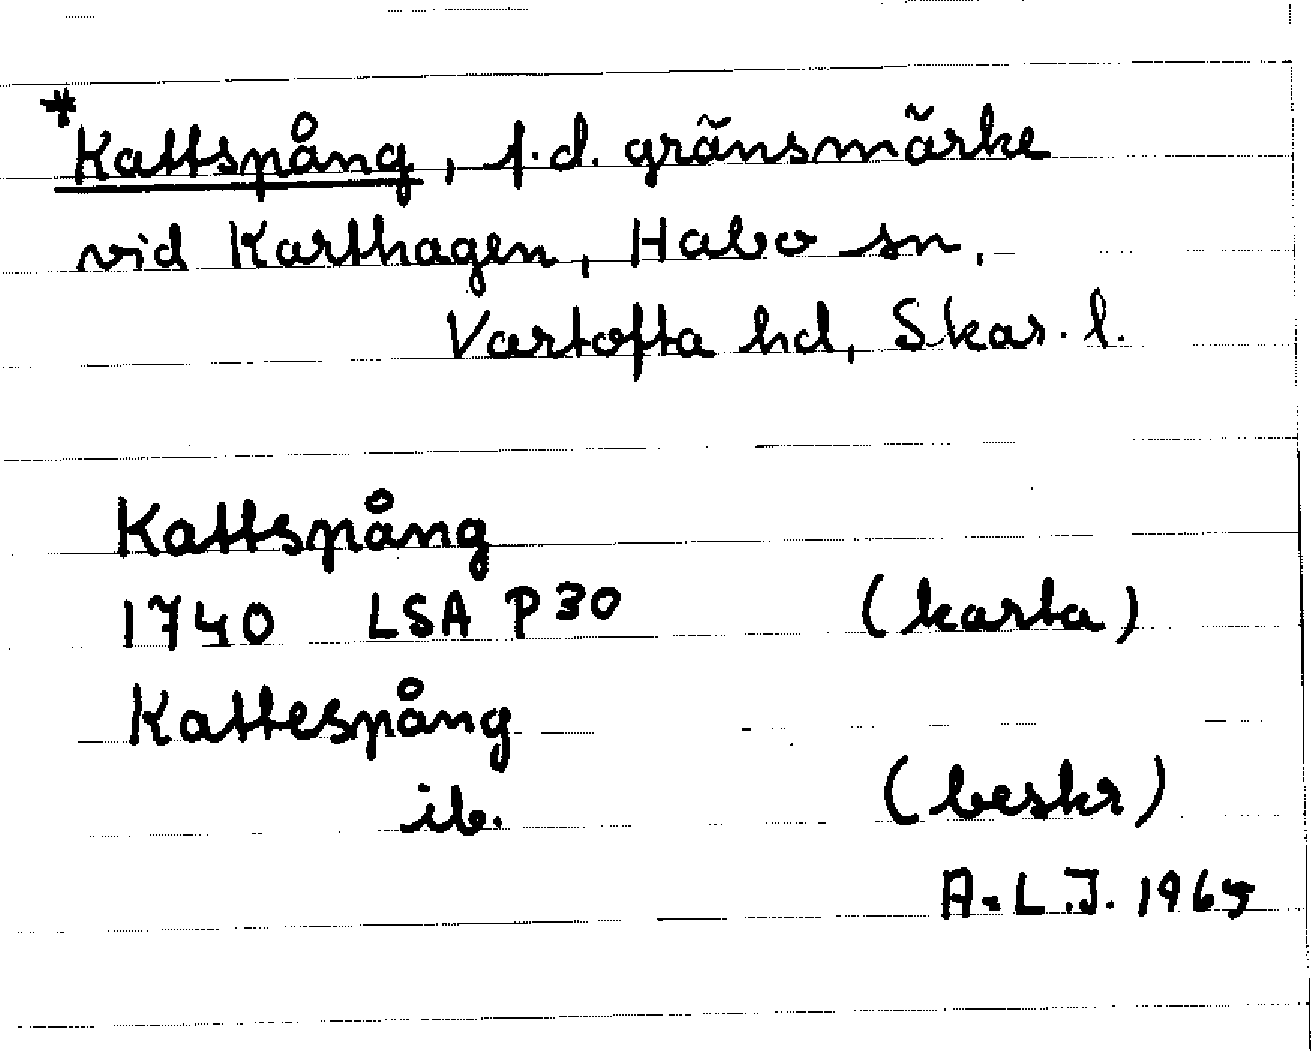 *Kattspång, f.d. gränsmärke
vid Karthagen, Habo sn,
Vartofta hd, Skar. l.
Kattspång
1740 LSA P30 (karta)
Kattespång
ib. (beskr)
A-L.J. 1965